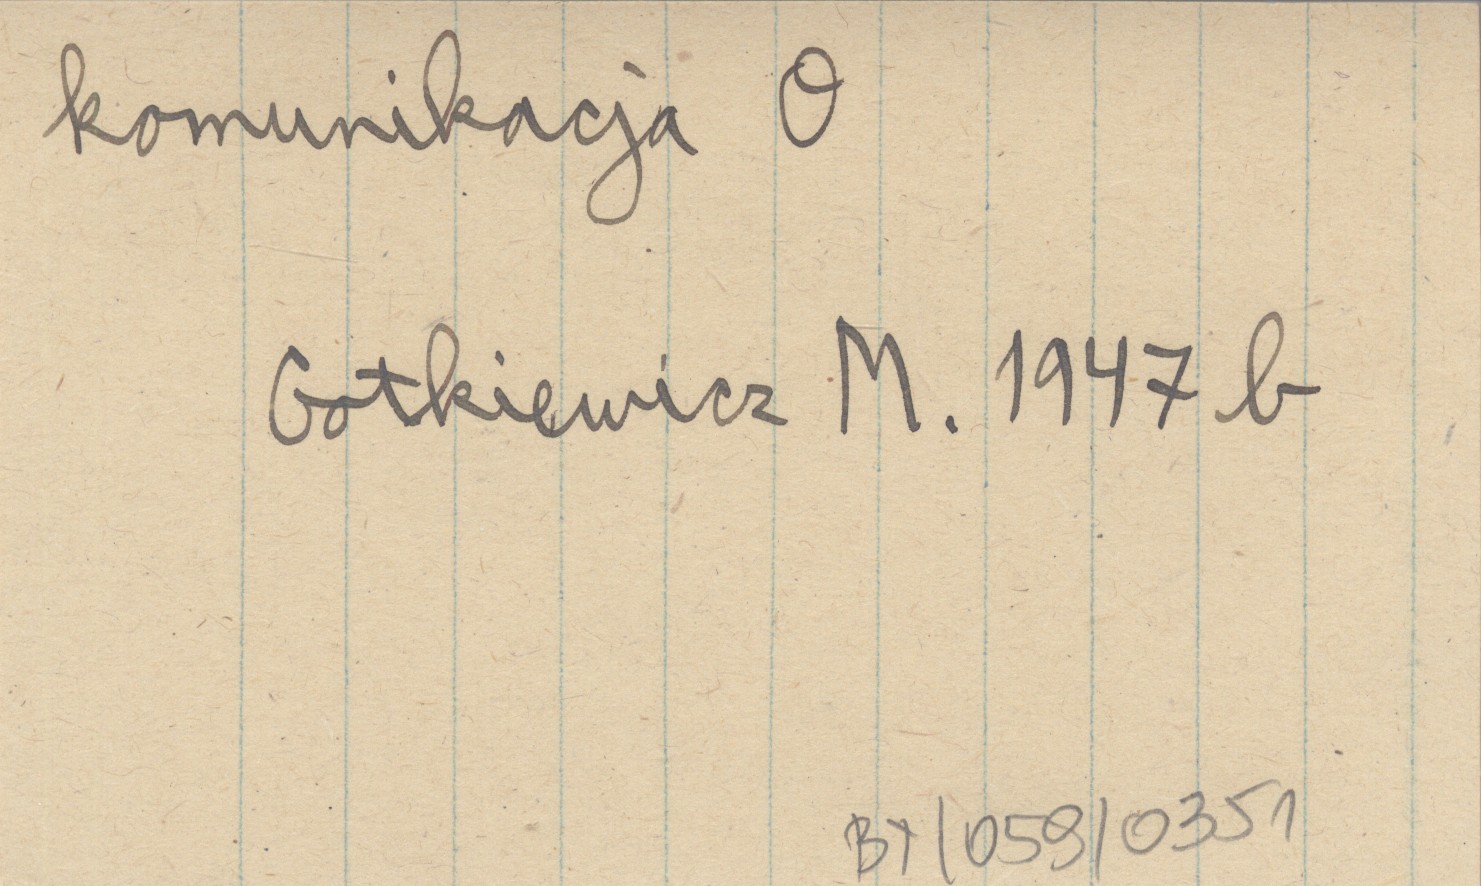 komunikacja O
Gotkiewicz M. 1947 b
BT/059/0351